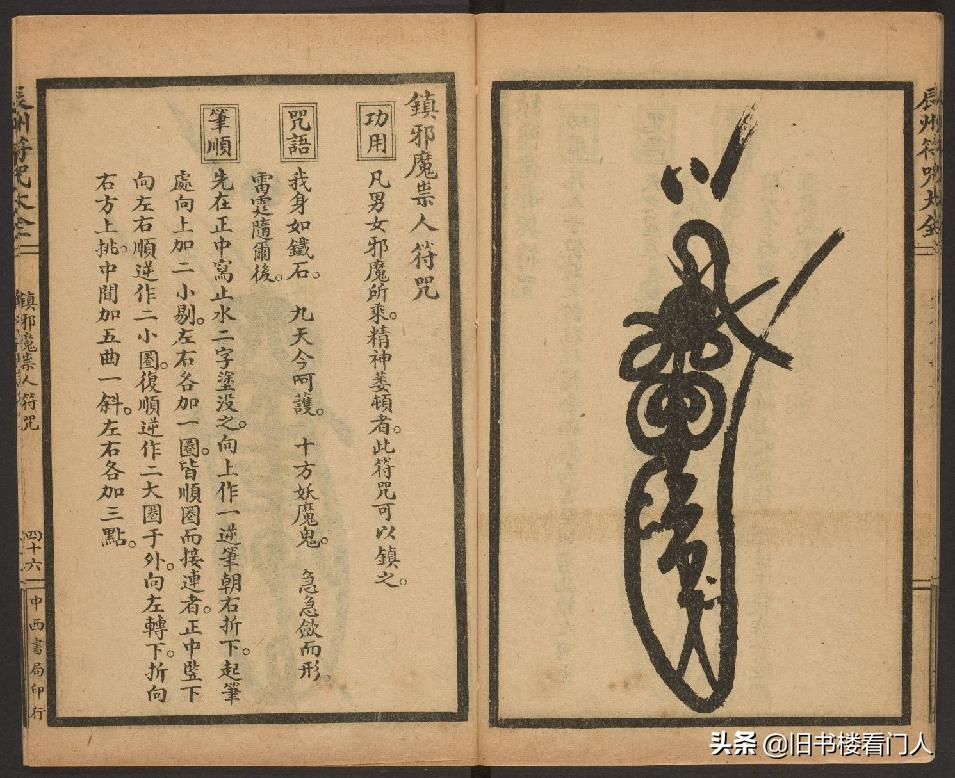 辰州符咒大全
鎮邪魔祟人符咒
功用
凡男女邪魔所乘。精神萎頓者。此符咒可以鎮之。
咒語
我身如鐵石。　九天今呵護。　十方妖魔鬼。　急急斂而形。
雷霆隨爾後。
筆順
先在正中寫止水二字塗没之。向上作一逆筆朝右折下。起筆
處向上加二小剔。左右各加一圈。皆順圈而接連者。正中竪下
向左右順逆作二小圈。復順逆作二大圈于外。向左轉下。折向
右方上挑。中間加五曲一斜。左右各加三點。
辰州符咒大全
鎮邪魔祟人符咒
四十六
中西書局印行
头条 @旧书楼看门人